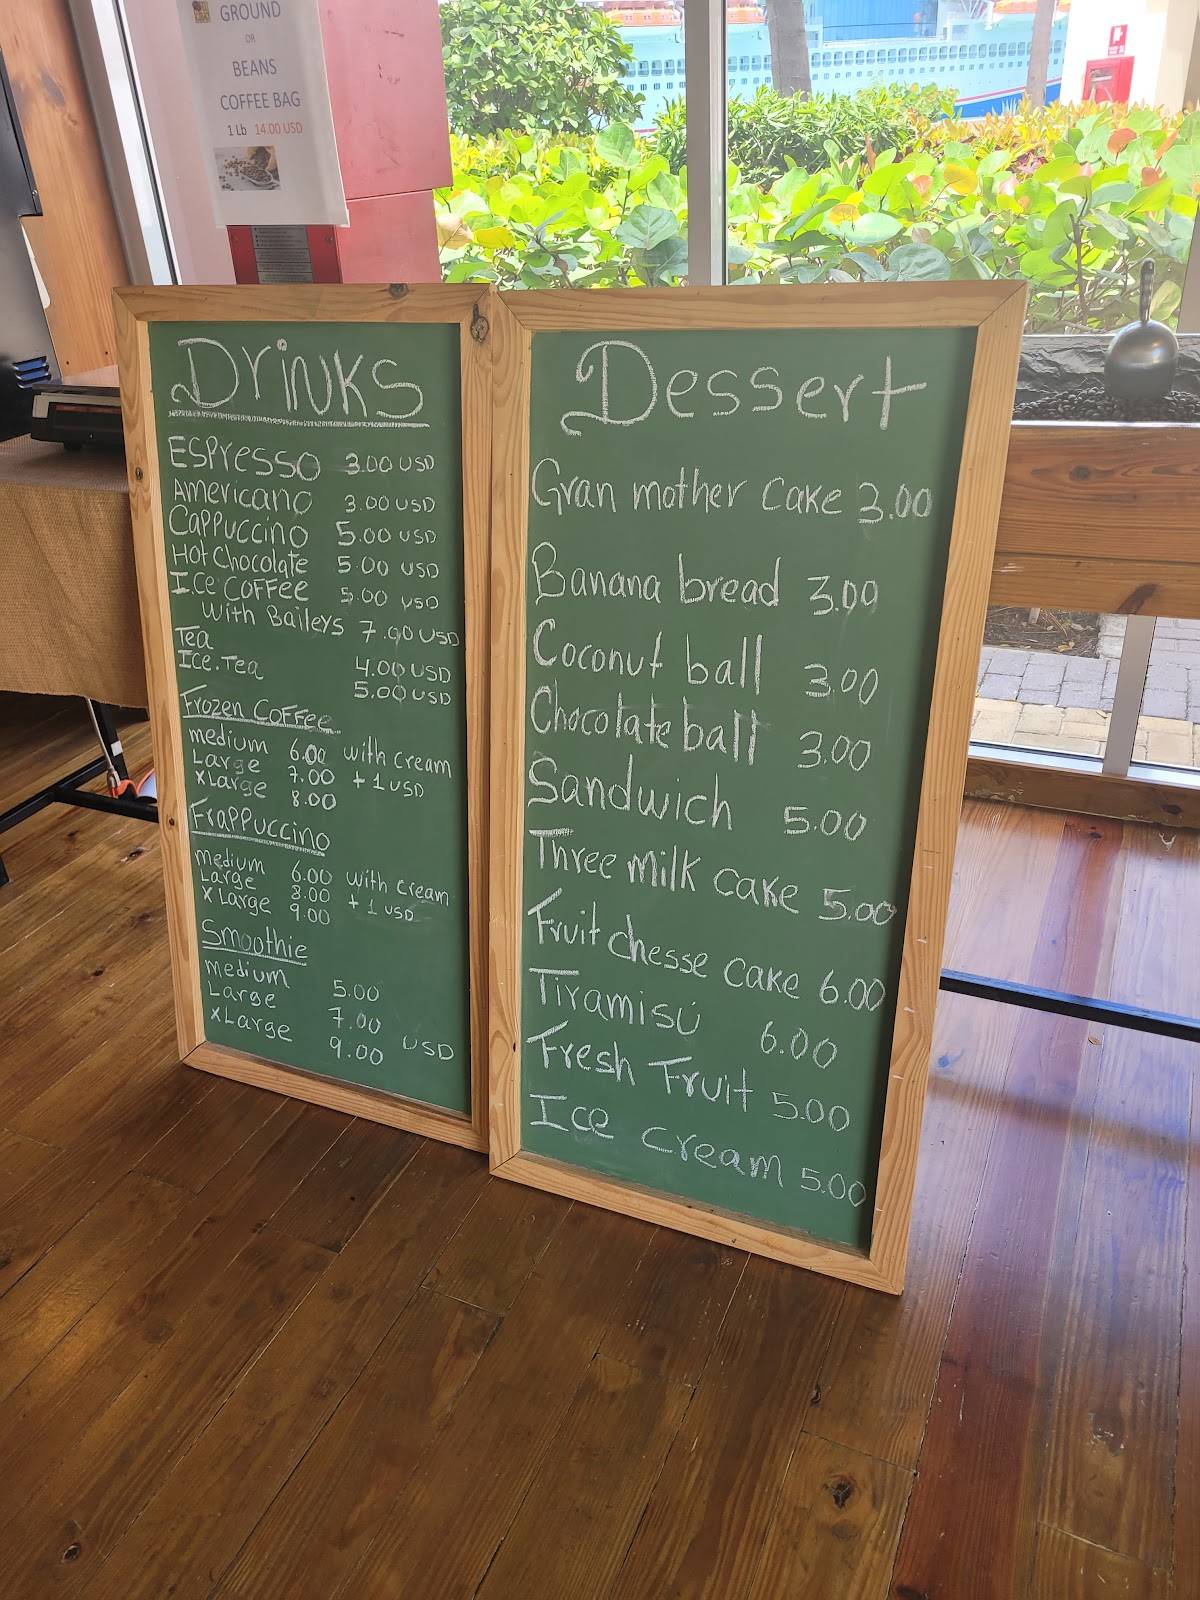 GROUND
OR
BEANS
COFFEE BAG
1 Lb 14.00 USD
DrinKs
ESPresso 3.00 USD
Americano 3.00 USD
Cappuccino 5.00 USD
Hot Chocolate 5.00 USD
I.ce Coffee 5.00 USD
with Baileys 7.00 USD
Tea 4.00 USD
Ice.Tea 5.00 USD
Frozen Coffee
medium 6.00 with cream
Large 7.00 + 1 USD
XLarge 8.00
Frappuccino
medium 6.00 with cream
Large 8.00 + 1 USD
X Large 9.00
Smoothie
medium 5.00
Large 7.00 USD
XLarge 9.00
Dessert
Gran mother cake 3.00
Banana bread 3.00
Coconut ball 3.00
Chocolate ball 3.00
Sandwich 5.00
Three milk cake 5.00
Fruit chesse cake 6.00
Tiramisú 6.00
Fresh Fruit 5.00
Ice cream 5.00